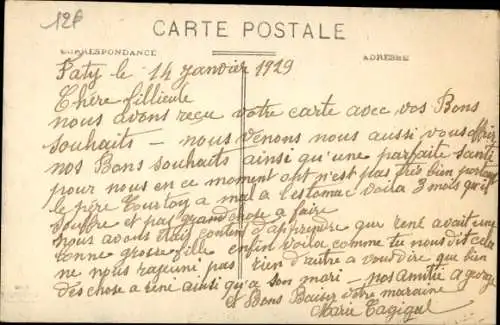 12f
CARTE POSTALE
CORRESPONDANCE
ADRESSE
Paty le 14 janvier 1929
Chère fillieule
nous avons reçu votre carte avec vos Bons
souhaits – nous venons nous aussi vous offrir
nos Bons souhaits ainsi qu'une parfaite santé
pour nous en ce moment ont n'est pas très bien portant
le père Tourtoy a mal a l'estomac voila 3 mois qu'il
souffre et pas grand chose a faire
nous avons était content d'apprendre que rené avait une
bonne grosse fille enfin voila comme tu nous dit cela
ne nous rajeuni pas rien d'autre a vous dire que bien
des chose a réné ainsi qu'a son mari – nos amitié a george
et Bons Baiser votre maraine
Marie